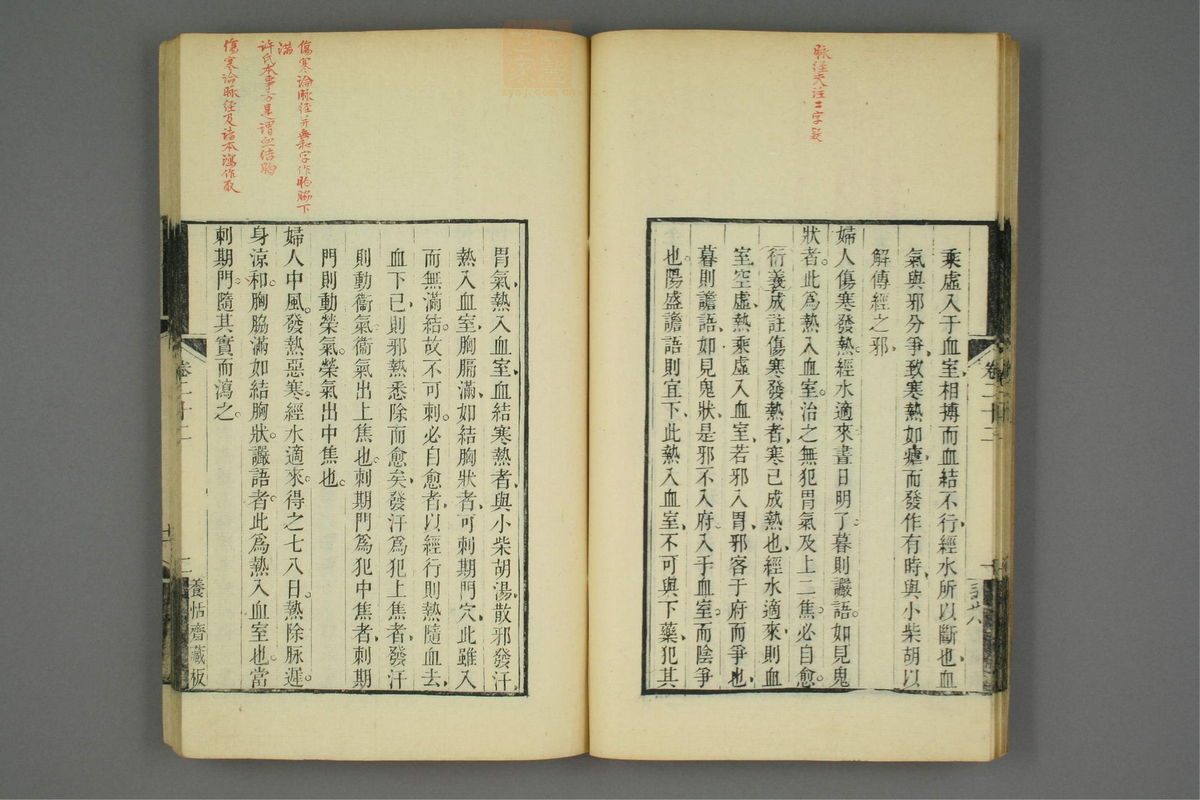 脉經夾注二字是
乘虛入于血室相搏而血結不行經水所以斷也血
氣與邪分爭致寒熱如瘧而發作有時與小柴胡以
解傳經之邪
婦人傷寒發熱經水適來晝日明了暮則讝語如見鬼
狀者此為熱入血室治之無犯胃氣及上二焦必自愈
衍義成註傷寒發熱者寒已成熱也經水適來則血
室空虛熱乘虛入血室若邪入胃邪客于府而爭也
暮則譫語如見鬼狀是邪不入府入于血室而陰爭
也陽盛譫語則宜下此熱入血室不可與下藥犯其
卷二十二
傷寒論脉經并無和字作胸脇下
滿
許氏本事方是謂血結胸
傷寒論脉經及諸本瀉作取
胃氣熱入血室血結寒熱者與小柴胡湯散邪發汗
熱入血室胸膈滿如結胸狀者可刺期門穴此雖入
而無滿結故不可刺必自愈者以經行則熱隨血去
血下已則邪熱悉除而愈矣發汗為犯上焦者發汗
則動衞氣衞氣出上焦也刺期門為犯中焦者刺期
門則動榮氣榮氣出中焦也
婦人中風發熱惡寒經水適來得之七八日熱除脉遲
身涼和胸脇滿如結胸狀讝語者此為熱入血室也當
刺期門隨其實而瀉之
卷二十二
養恬齋藏板